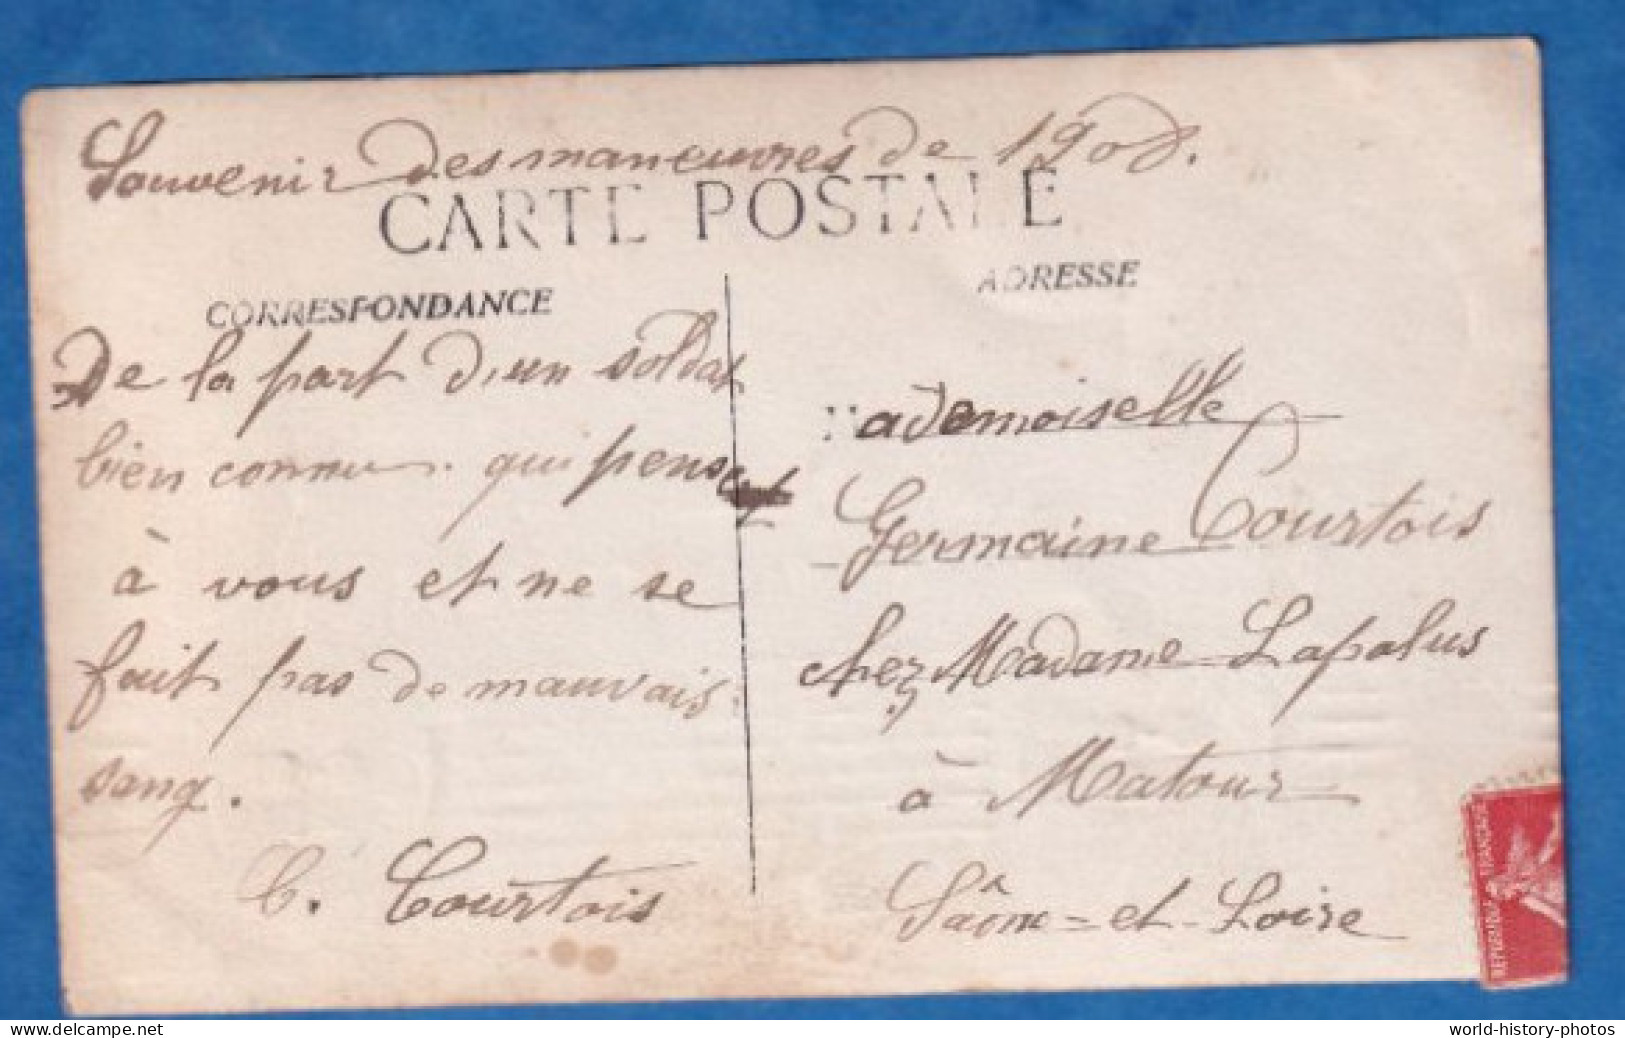 Souvenir des maneuvres de 1908.
CARTE POSTALE
CORRESPONDANCE
De la part d'un soldat
bien connu qui pense
à vous et ne se
fait pas de mauvais
sang.
C. Courtois
ADRESSE
Mademoiselle
Germaine Courtois
chez Madame Lapalus
à Matour
Saône-et-Loire
REPUBLIQUE FRANÇAISE
delcampe.net
world-history-photos